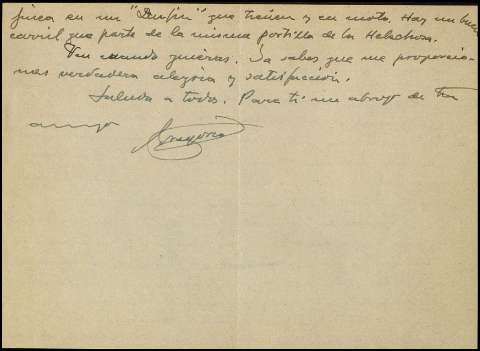 finca en un "Dunfin" que tienen y en moto. Hay un buen
carril que parte de la misma portilla de la Helechosa.
Ven cuando quieras. Ya sabes que me proporcio-
nas verdadera alegria y satisfacción.
Saluda a todos. Para ti un abrazo de tu
amigo
Gregorio